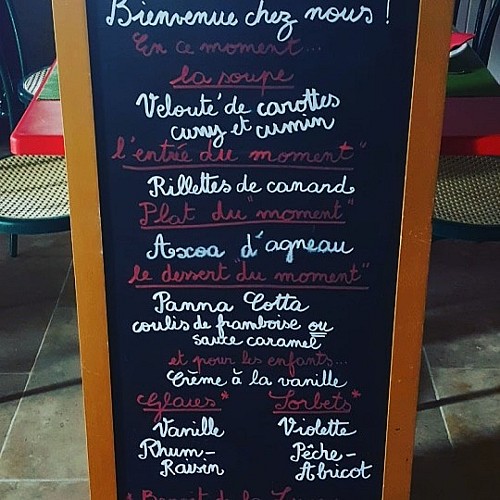 Bienvenue chez nous !
En ce moment...
la soupe
Velouté de carottes
curry et cumin
l'entrée du moment"
Rillettes de canard
Plat du "moment"
Axoa d'agneau
le dessert "du moment"
Panna Cotta
coulis de framboise ou
sauce caramel
et pour les enfants...
Crème à la vanille
Glaces* Sorbets*
Vanille Violette
Rhum- Pêche-
Raisin Abricot
de la